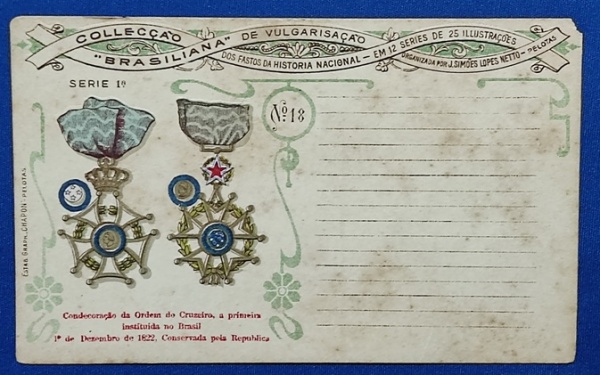 COLLECÇÃO "BRASILIANA" DE VULGARISAÇÃO
DOS FASTOS DA HISTORIA NACIONAL — EM 12 SERIES DE 25 ILLUSTRAÇÕES
ORGANIZADA POR J. SIMÕES LOPES NETTO - PELOTAS
SERIE 1ª
Nº. 18
ESTAB. GRAPH. CHAPON - PELOTAS
Condecoração da Ordem do Cruzeiro, a primeira
instituida no Brasil
1º de Dezembro de 1822. Conservada pela Republica